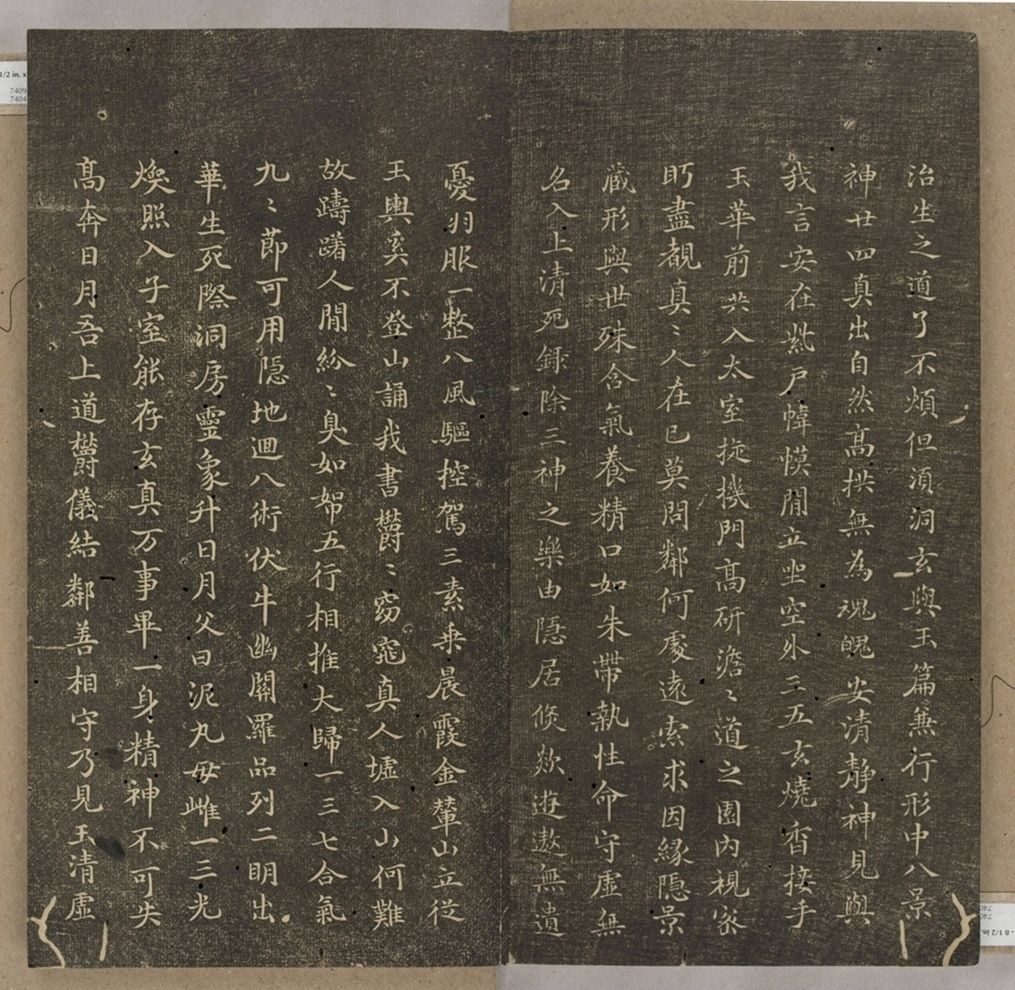 治生之道了不煩但湏洞玄與玉篇無行形中八景
神廿四真出自然髙拱無為魂魄安清静神見與
我言安在紫戸幃幙間立坐空外三五玄燒香接手
玉華前共入太室璇機門髙研澹〻道之園内視密
盻盡覩真〻人在己莫問鄰何處遠索求因緣隱景
藏形與世殊含氣養精口如朱帶執性命守虛無
名入上清死録除三神之樂由隠居倐欻逰遨無遺
憂羽服一整八風驅控駕三素乗晨霞金輦山立從
玉輿奚不登山誦我書欝〻窈窕真人墟入山何難
故躊躇人間紛〻臭如帤五行相推大歸一三七合氣
九〻節可用隠地迴八術伏牛幽闕羅品列二明出
華生死際洞房靈象升日月父曰泥丸母雌一三光
煥照入子室能存玄真万事畢一身精神不可失
髙奔日月吾上道欝儀結鄰善相守乃見玉清虛
1/2 in. x
7409
7404
- 8 1/2 in.
740